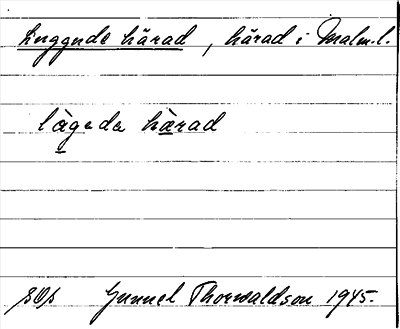 Luggude härad, härad i Malm.l.
lägeda härad
SOS Gunnel Thorwaldson 1945.